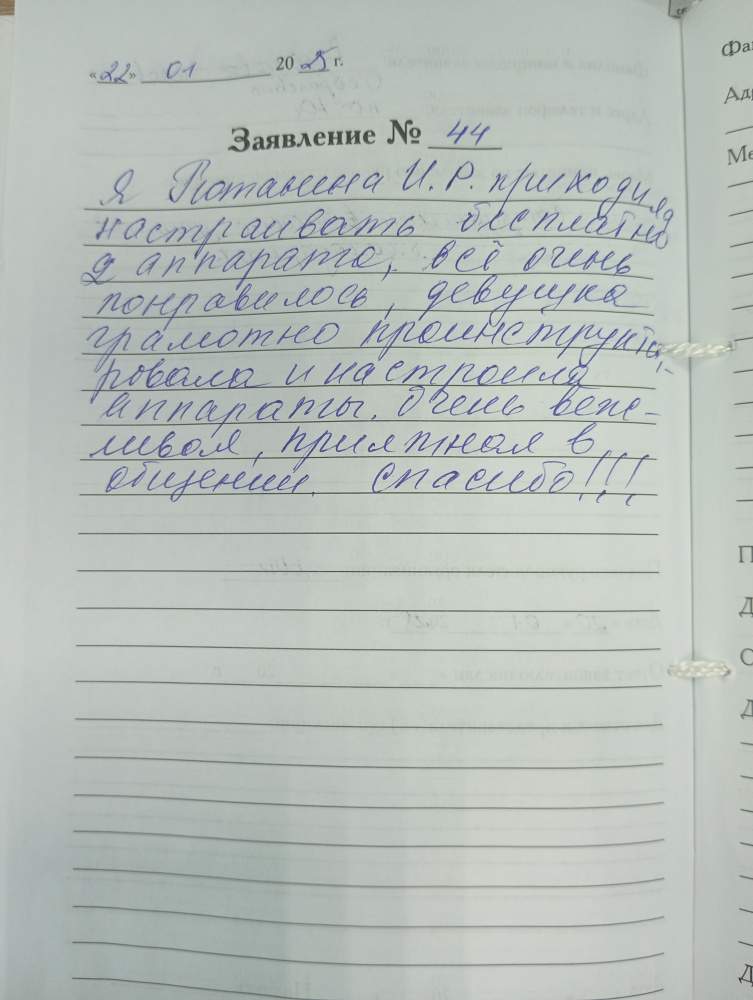 «22» 01 2025 г.
Заявление № 44
Я И.Р. приходила
настраивать бесплатно
2 аппарата, всё очень
понравилось, девушка
грамотно проинструкти-
ровала и настроила
аппараты. Очень веж-
ливая, приятная в
общении. спасибо!!!
Фа
Ад
Ме
П
Д
О
Д
Д